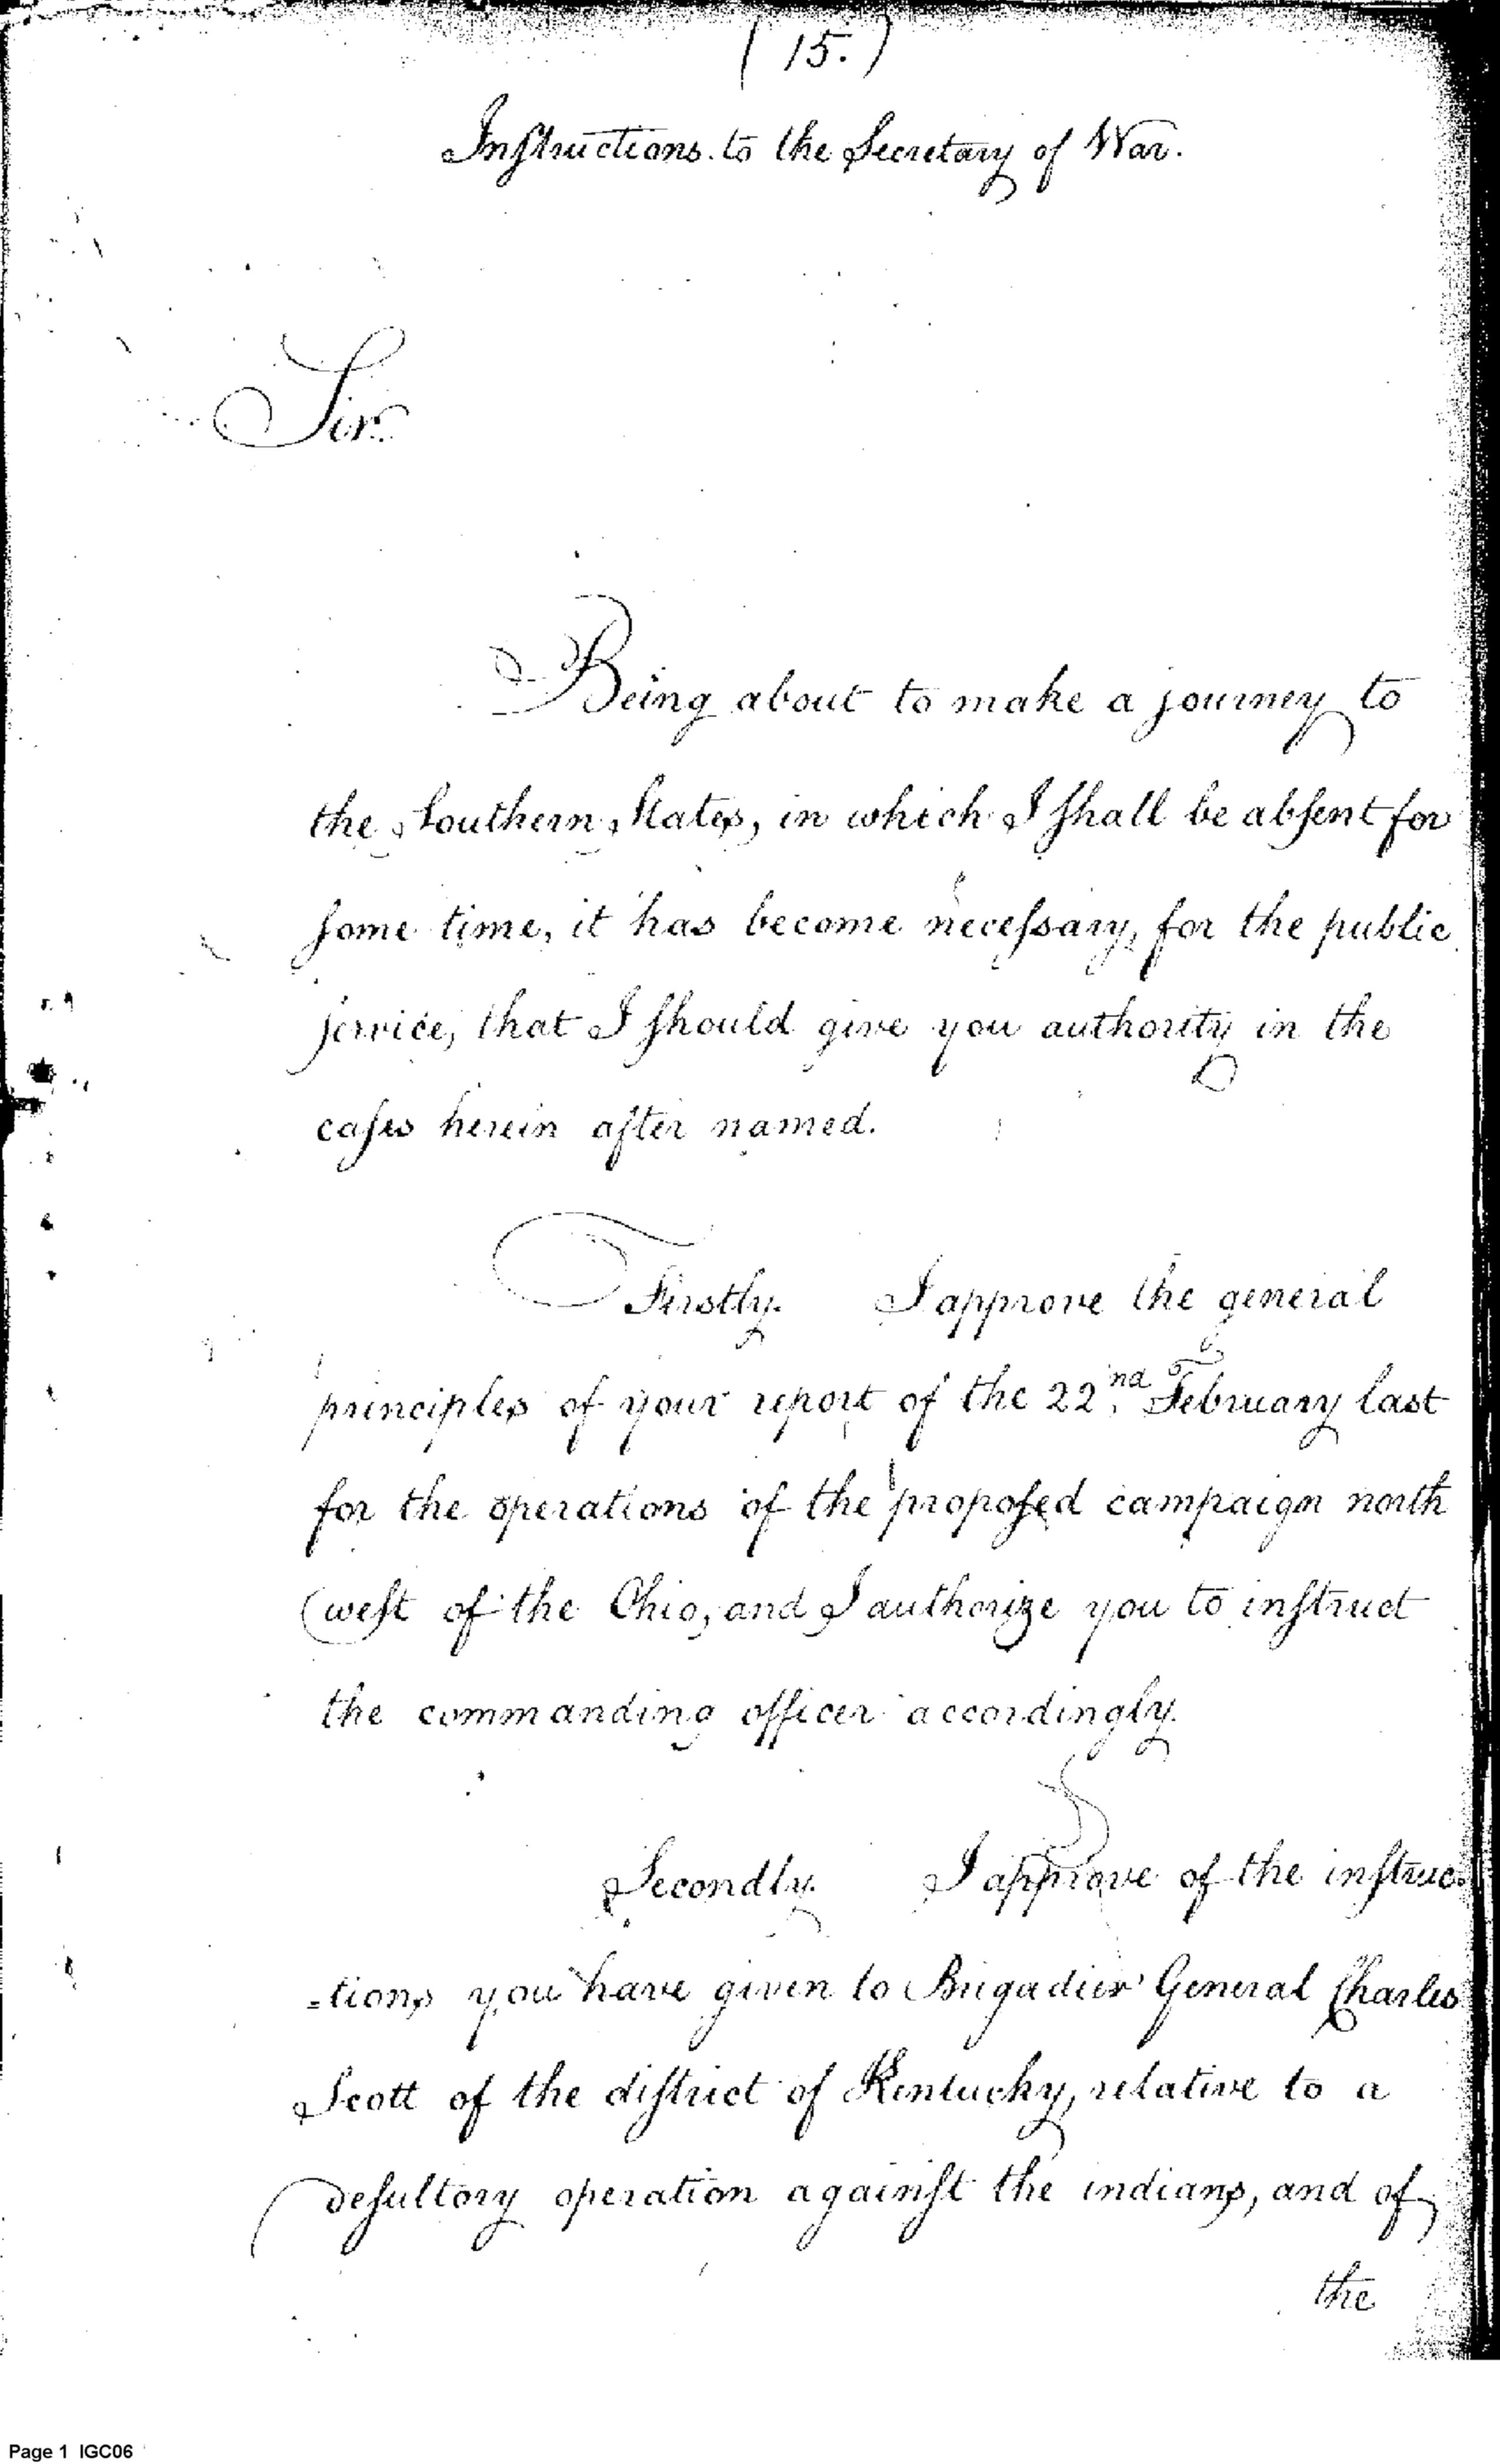 ( 15. )
Instructions to the Secretary of War.
Sir.
Being about to make a journey to
the Southern States, in which I shall be absent for
some time, it has become necessary, for the public
service, that I should give you authority in the
cases herein after named.
Firstly. I approve the general
principles of your report of the 22nd. February last
for the operations of the proposed campaign north
west of the Ohio, and I authorize you to instruct
the commanding officer accordingly.
Secondly. I approve of the instruc-
=tions you have given to Brigadier General Charles
Scott of the district of Kentucky, relative to a
desultory operation against the indians, and of
the
Page 1 IGC06